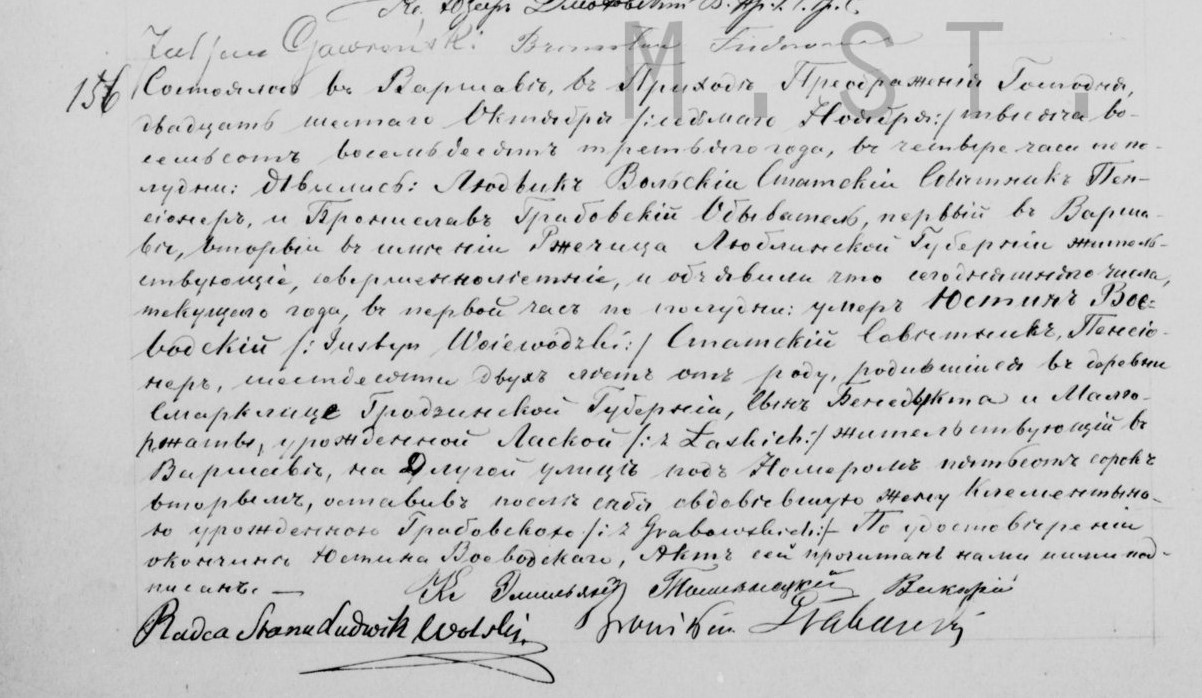 Кс. Юзефъ
M. S. T.
Juljan Gawroński. Bronisław
156 Состоялось въ Варшавѣ, въ Приходѣ Преображенія Господня,
двадцать шестаго Октября /:седьмаго Ноября:/ тысяча во-
семьсотъ восемьдесятъ третьяго года, въ четыре часа по по-
лудни: Явились: Людвикъ Вольскій Статскій Совѣтникъ Пен-
сіонеръ, и Брониславъ Грабовскій Обыватель, первый въ Варша-
вѣ, вторый въ имѣніи Ржечица Люблинской Губерніи житель-
ствующіе, совершеннолѣтніе, и объявили что сегодняшняго числа,
текущаго года, въ первой часъ по полудни: умеръ Юстинъ Вое-
водскій /:Justyn Woiewodzki:/ Статскій Совѣтникъ, Пенсіо-
неръ, шестьдесяти двухъ лѣтъ отъ роду, родившійся въ деревни
Смарклице Гродзинской Губерніи, Сынъ Бенедыкта и Малго-
ржаты, урожденной Лаской /:z Łaskich:/ жительствующій въ
Варшавѣ, на Длугой улицѣ подъ Номеромъ пятьсотъ сорокъ
вторымъ, оставивъ послѣ себя овдовѣвшую жену Клементыно-
ю урожденною Грабовскою /:z Grabowskich:/ По удостовѣреніи
окончины Юстина Воеводскаго, Актъ сей прочитанъ нами и ими под-
писанъ. —
Кс Эмильянъ Викарій
Radca Stanu Ludwik Wolski.
Bronisław Grabowski